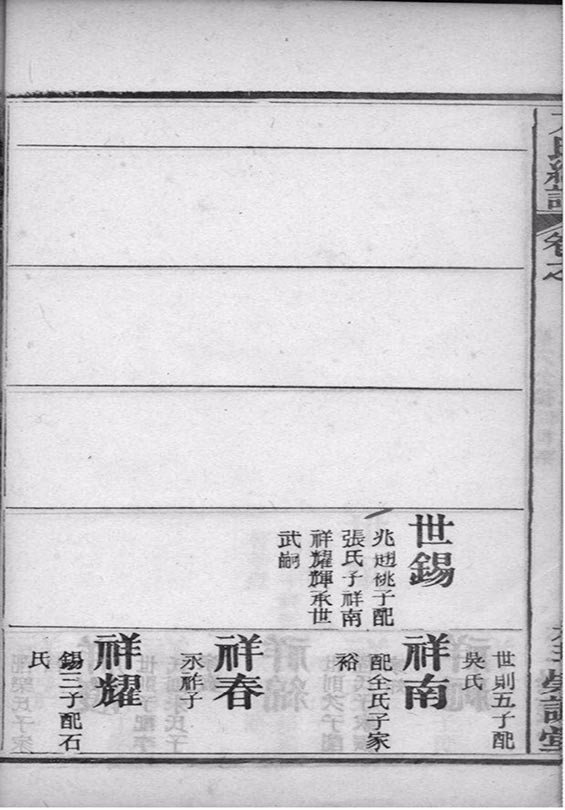 氏統譜
卷之
世錫
兆趙祧子配
張氏子祥南
祥耀輝承世
武嗣
世則五子配
吳氏
祥南
配全氏子家
裕
祥春
永祚子
祥耀
錫三子配石
氏